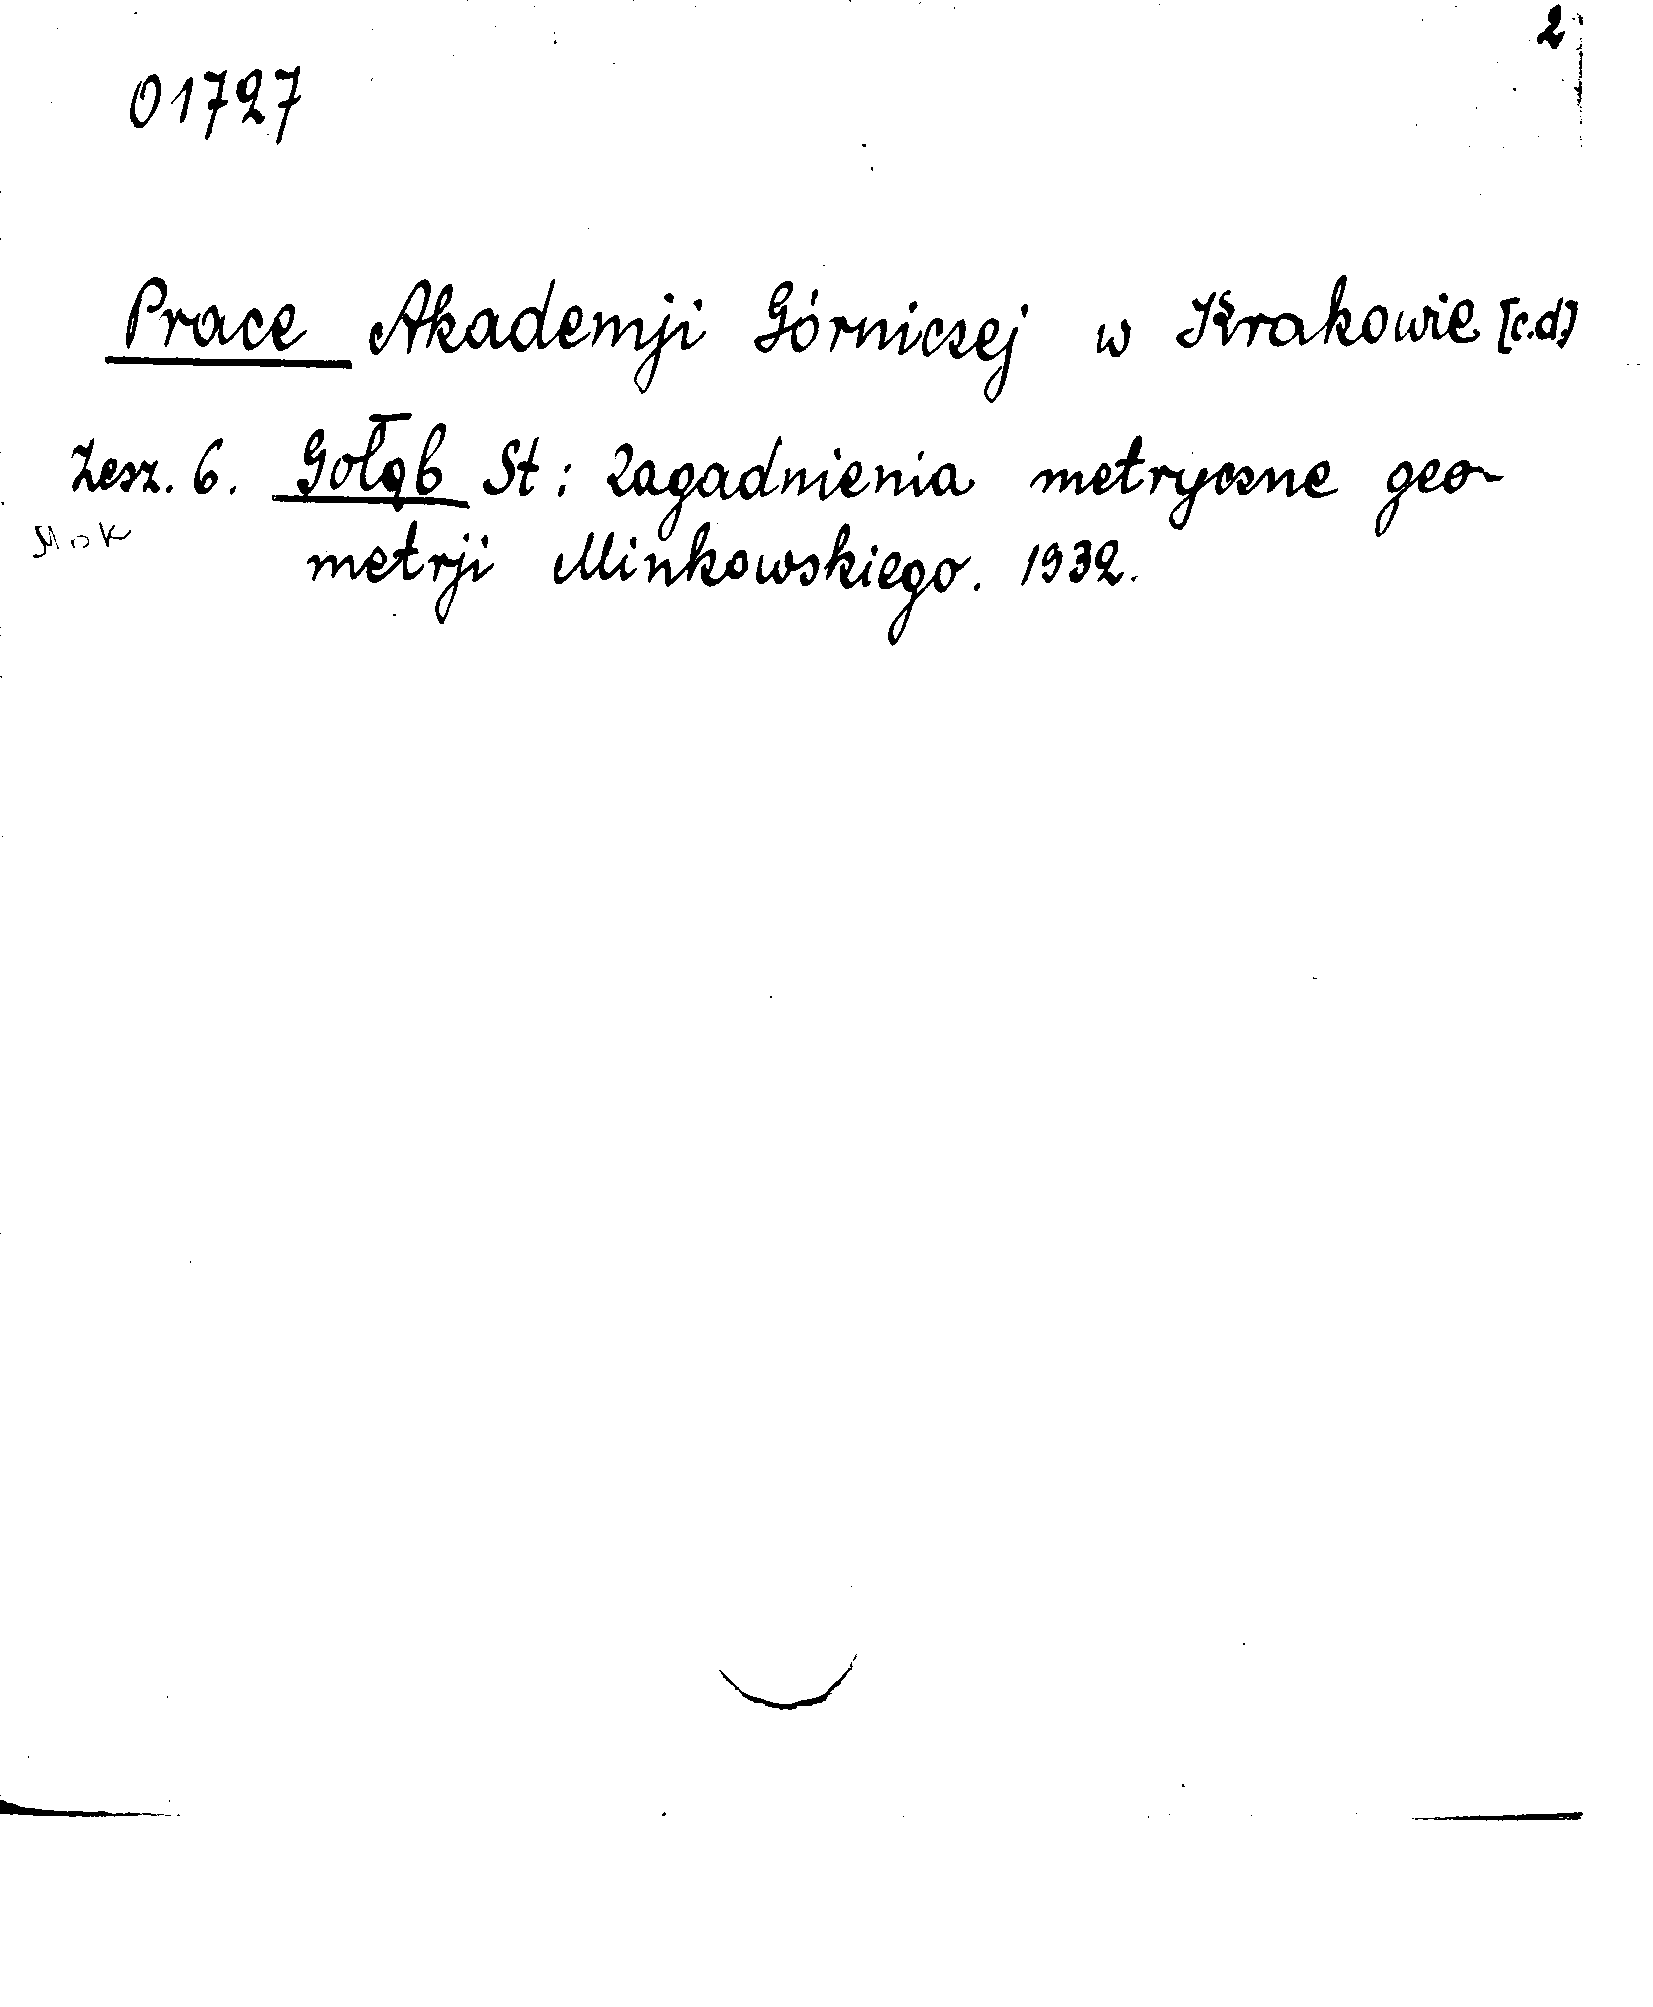 2
01727
Prace Akademji Górniczej w Krakowie [c.d.]
Zesz. 6. Gołąb St: Zagadnienia metryczne geo-
metrji Minkowskiego. 1932.